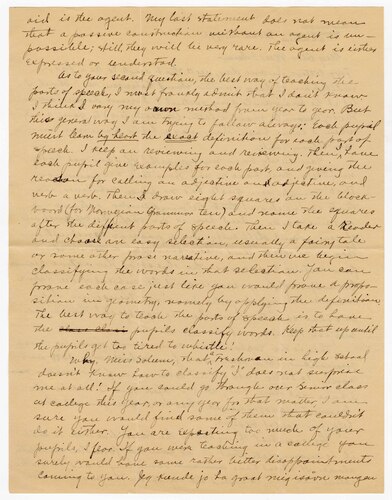 aid is the agent. My last statement does not mean
that a passive construction without an agent is im-
possible; still, they will be very rare. The agent is either
expressed or understood.
As to your second question, the best way of teaching the
parts of speech, I most frankly admit that I don't know.
I think I vary my own method from year to year. But
this general way I am trying to follow always: Each pupil
must learn by heart the exact definition for each part of
speech. I keep on reviewing and reviewing. Then, I have
each pupil give examples for each part and giving the
reason for calling an adjective an adjective, and
verb a verb. Then I draw eight squares on the black-
board (for Norwegian Grammar ten) and name the squares
after the different parts of speech. Then I take a reader
and choose an easy selection, usually a fairy tale
or some other prose narrative, and then we begin
classifying the words in that selection. You can
frame each case just like you would prove a propo-
sition in geometry, namely by applying the definition.
The best way to teach the parts of speech is to have
the pupils classify words. Keep that up until
the pupils get too tired to whistle!
Why, Miss Solem, that "Freshman in high school
doesn't know how to classify" does not surprise
me at all! If you could go through our Senior class
at college this year, or any year for that matter, I am
sure you would find some of them that couldn't
do it either. You are expecting too much of your
pupils, I fear. If you were teaching in a college you
surely would have some rather bitter disappointments
coming to you. Jeg kunde jo ha grått mig isøvn mangen